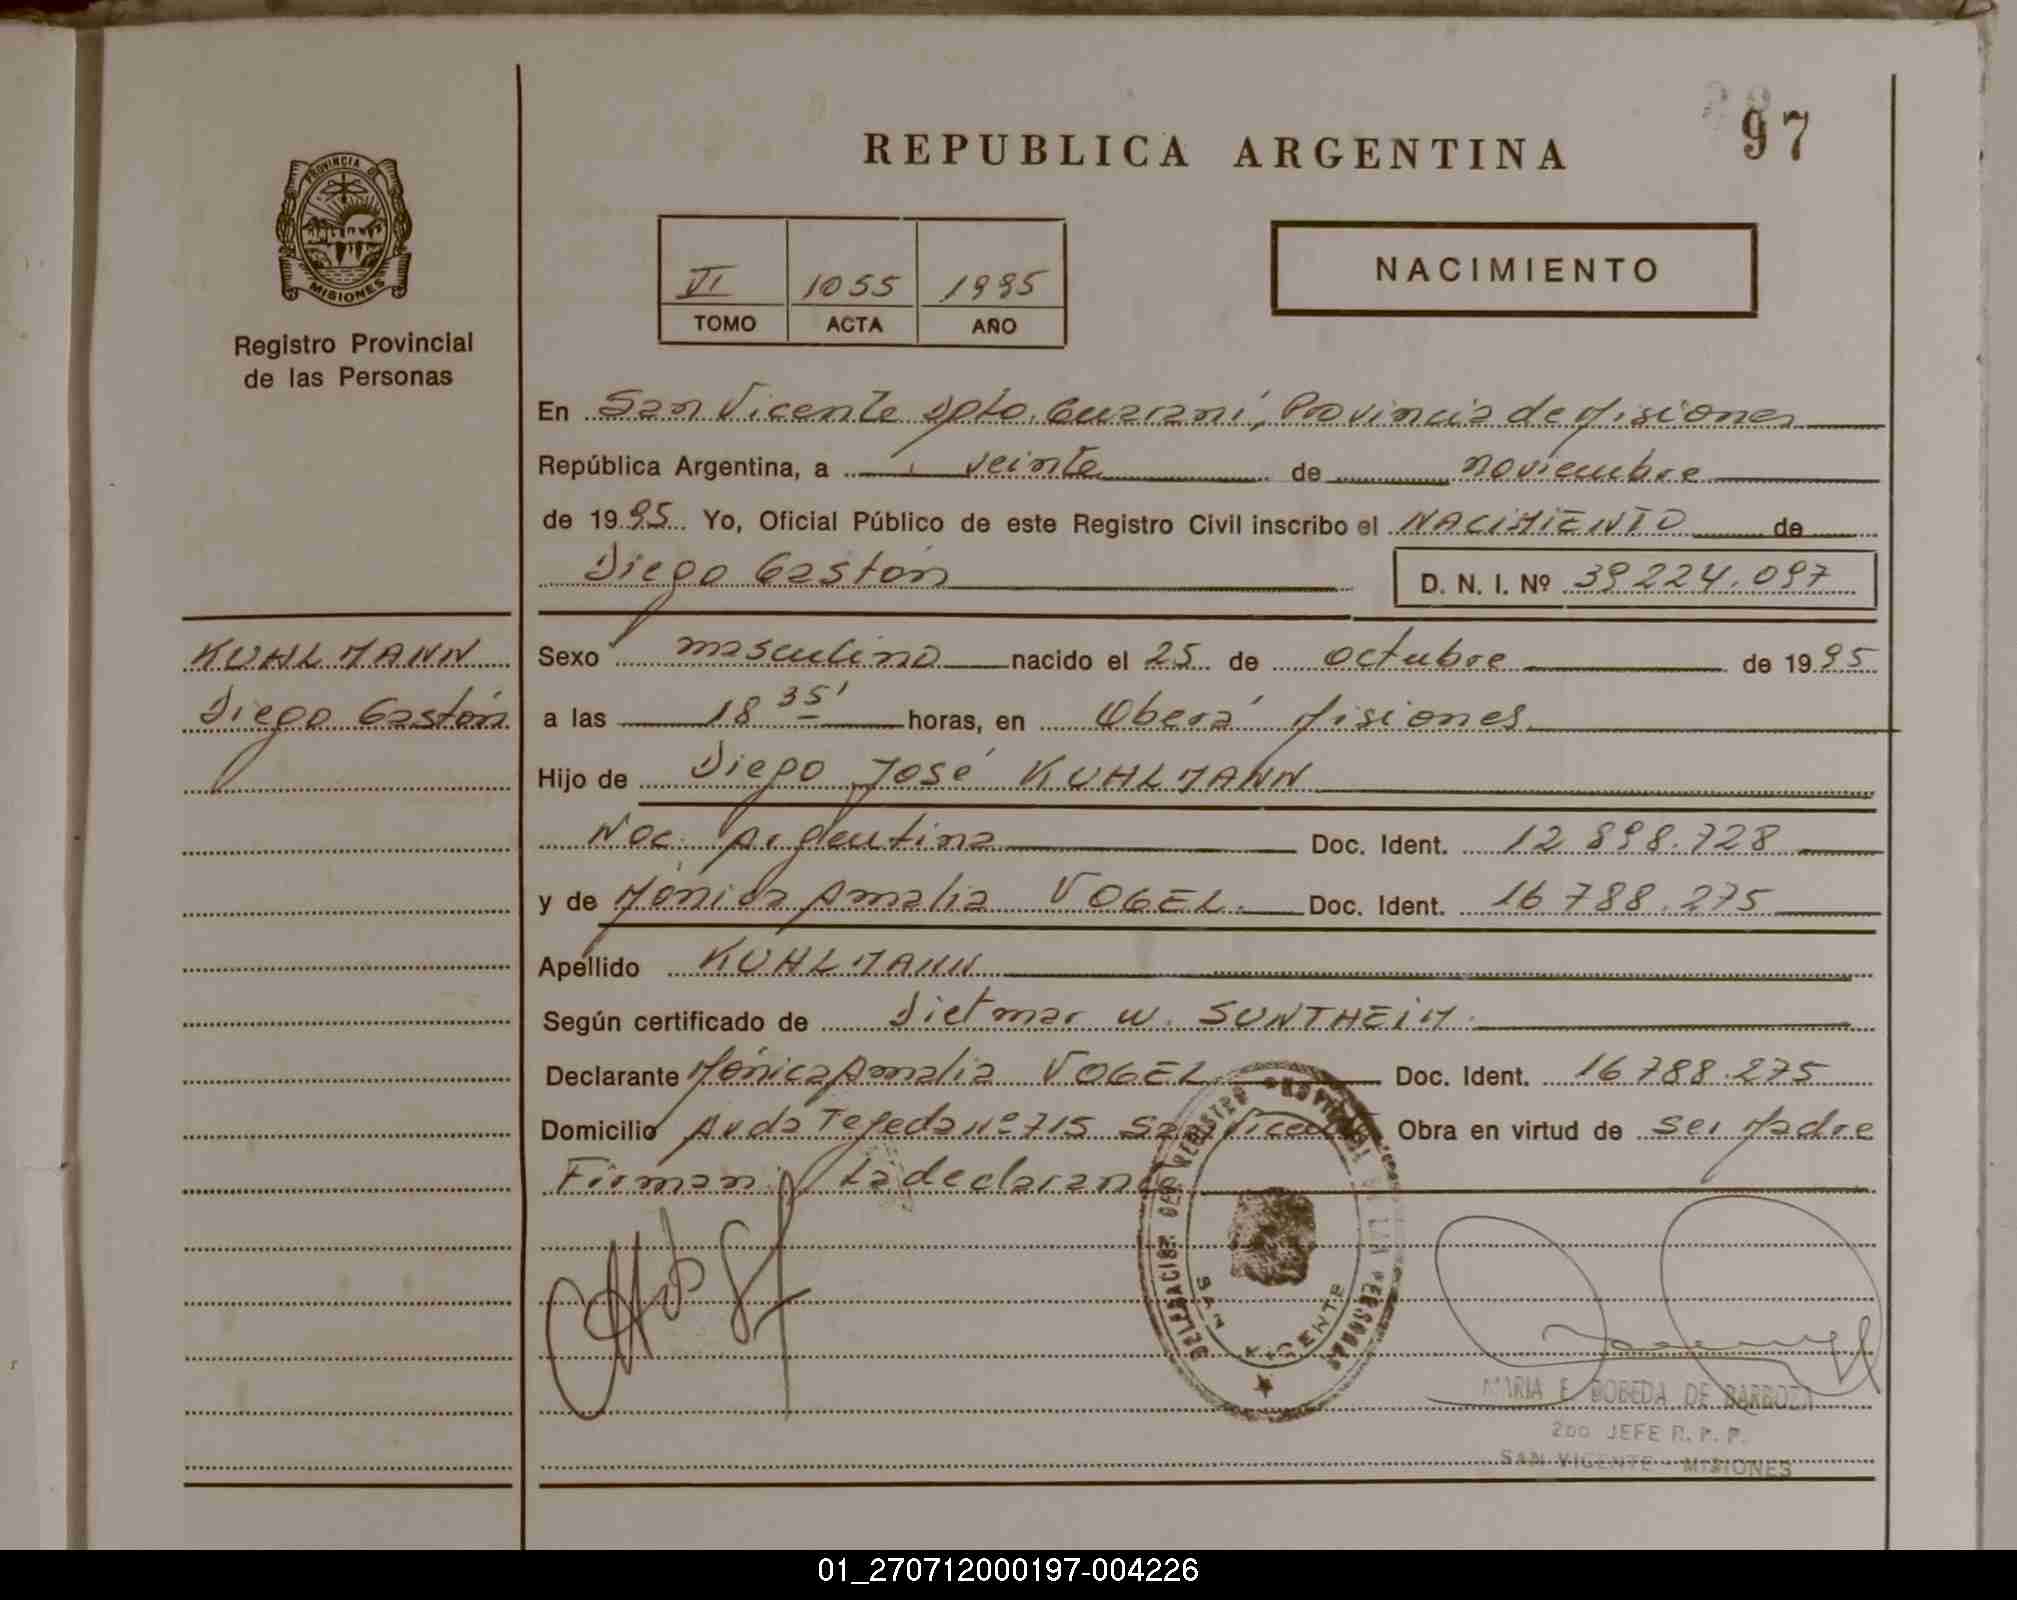 REPUBLICA ARGENTINA
97
PROVINCIA DE
MISIONES
Registro Provincial
de las Personas
VI 1055 1995
TOMO ACTA AÑO
NACIMIENTO
En San Vicente Dpto. Guaraní, Provincia de Misiones
República Argentina, a veinte de noviembre
de 1995 Yo, Oficial Público de este Registro Civil inscribo el NACIMIENTO de
Diego Gastón D. N. I. Nº 39224.097
KUHLMANN
Diego Gastón
Sexo masculino nacido el 25 de octubre de 1995
a las 18 35' horas, en Oberá Misiones
Hijo de Diego José KUHLMANN
Nac. Argentina Doc. Ident. 12 898.728
y de Mónica Amalia VOGEL Doc. Ident. 16 788.275
Apellido KUHLMANN
Según certificado de Dietmar W. SUNTHEIM.
Declarante Mónica Amalia VOGEL Doc. Ident. 16 788.275
Domicilio Avda Tejeda Nº 715 San Vicente Obra en virtud de ser Madre
Firman: La declarante
DELEGACION DEL REGISTRO PROVINCIAL DE LAS PERSONAS
SAN VICENTE
MARIA E BOBEDA DE BARBOZA
2do JEFE R. P. P.
SAN VICENTE - MISIONES
01_270712000197-004226